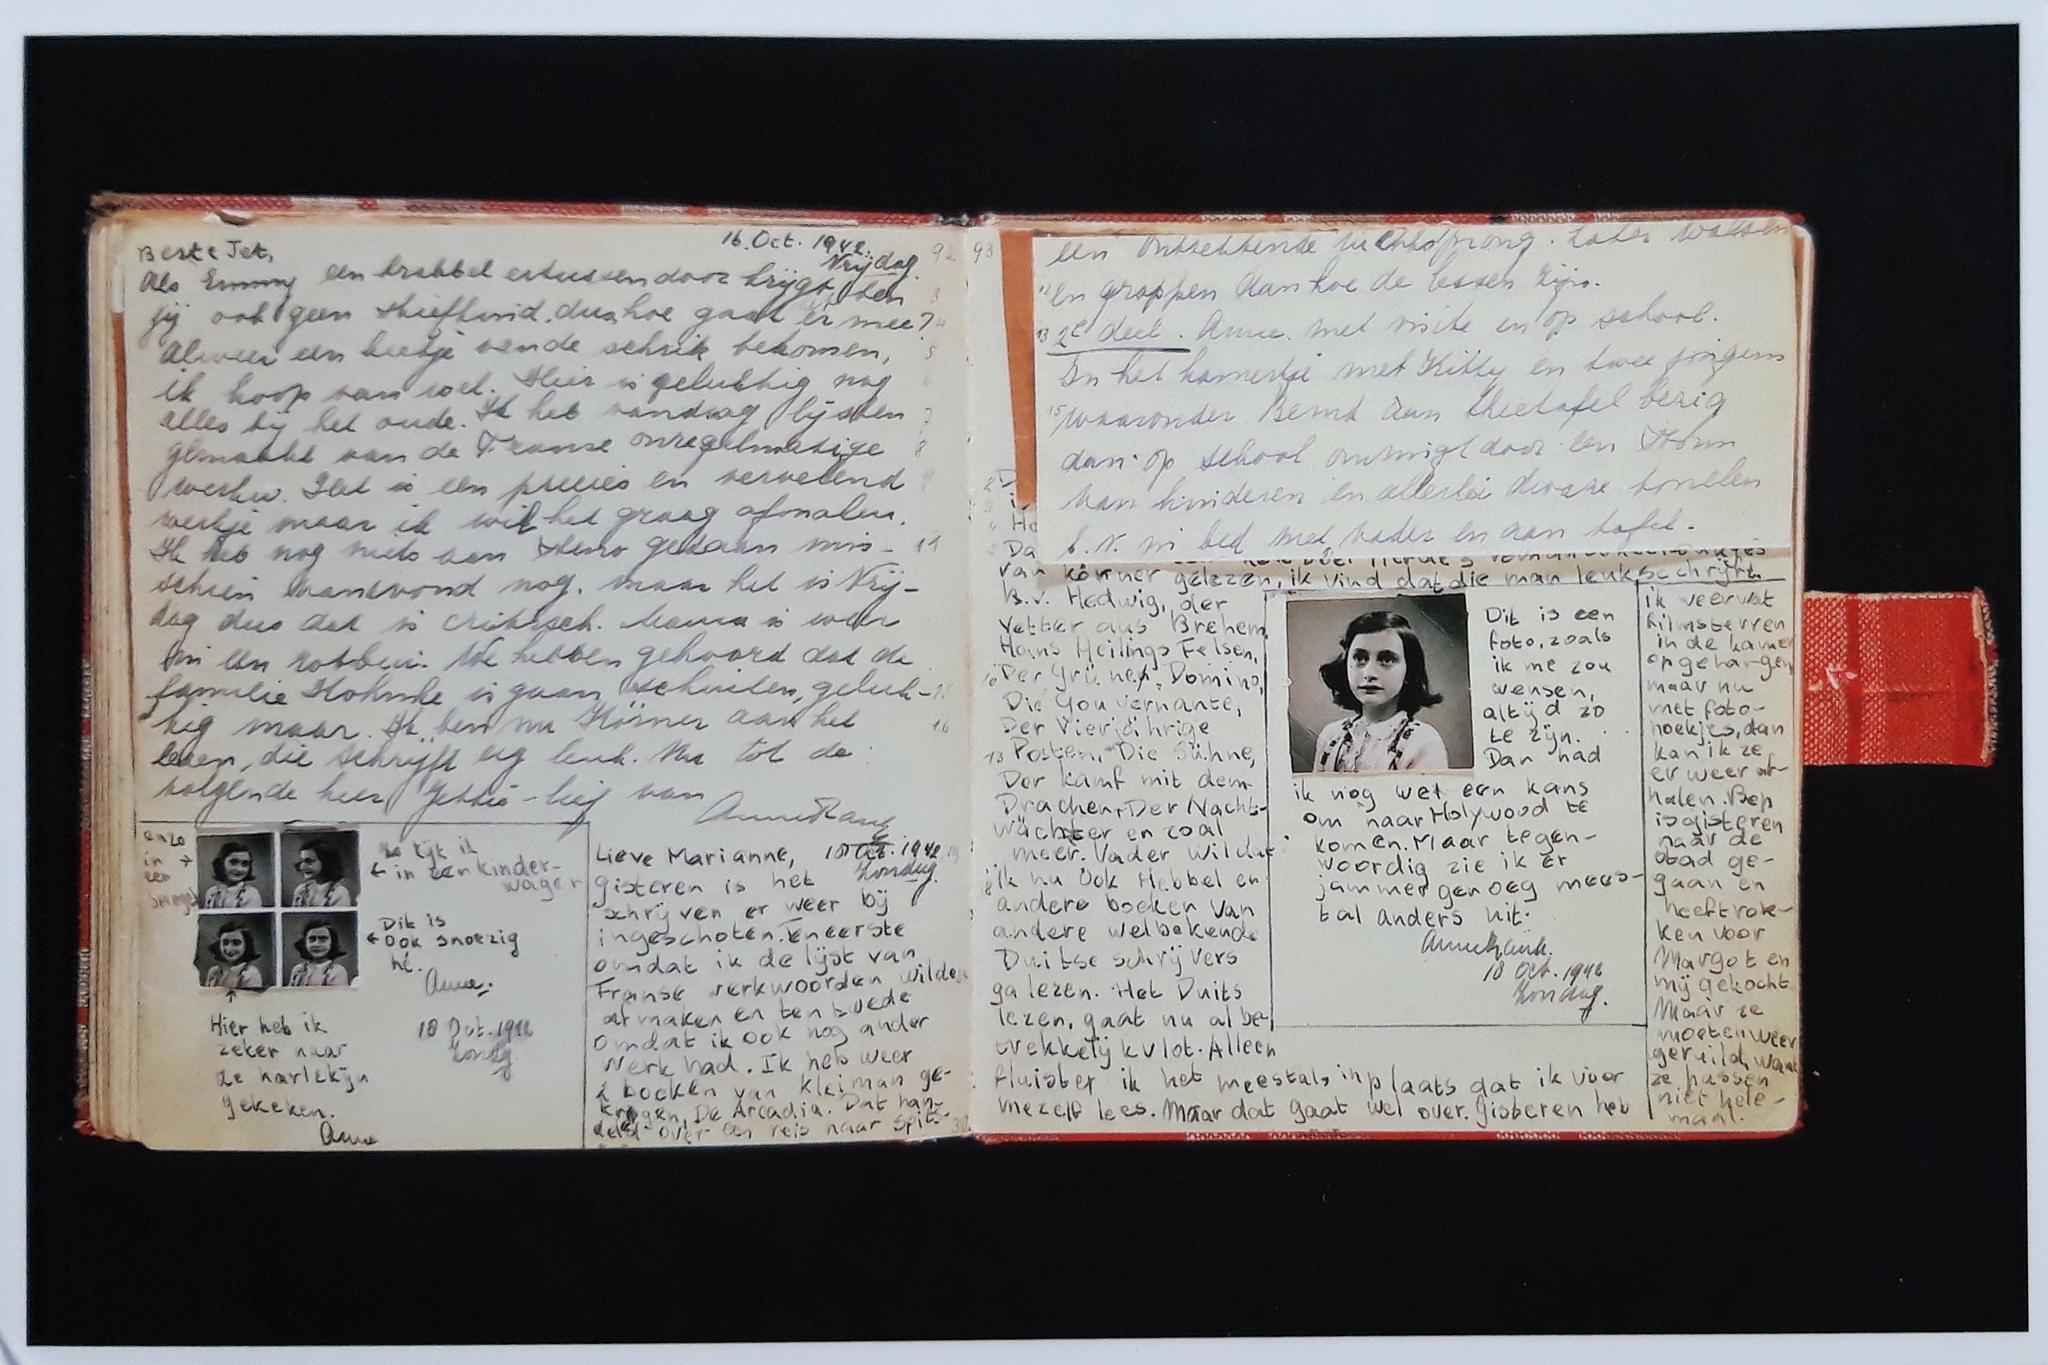 Beste Jet,
16. Oct. 1942.
Vrijdag
92
Als Emmy een krabbel ertussendoor krijgt, ben
jij ook geen stiefkind. dus hoe gaat er mee?
Alweer een beetje van de schrik bekomen,
ik hoop van wel. Hier is gelukkig nog
alles bij het oude. Ik heb vandaag lijsten
gemaakt van de Franse onregelmatige
werkw. Het is een precies en vervelend
werkje maar ik wil het graag afmaken.
Ik heb nog niets aan steno gedaan mis-
schien vanavond nog, maar het is Vrij-
dag dus dat is critisch. Mama is weer
in een rotbui. We hebben gehoord dat de
familie is gaan schuilen, geluk-
kig maar. Ik ben nu Körner aan het
lezen, die schrijft erg leuk. Nu tot de
volgende keer Jettie-lief van
Anne Frank
enzo
in
een
spiegel
zo kijk ik
in een kinder-
wagen
Dit is
ook snoezig
hè.
Anne.
18 Oct. 1942
Zondag
Hier heb ik
zeker naar
de harlekijn
gekeken.
Anne
Lieve Marianne,
18 Oct. 1942
Zondag.
gisteren is het
schrijven er weer bij
ingeschoten. Ten eerste
omdat ik de lijst van
Franse werkwoorden wilde
afmaken en ten twede
omdat ik ook nog ander
werk had. Ik heb weer
2 boeken van Kleiman ge-
kregen, De Arcadia. Dat han-
delt over een reis naar Spits-
93
een ontzettende luchtsprong. Later walsen
en grappen dan hoe de lessen zijn.
2e deel. Anne met visite en op school.
In het kamertje met Kitty en twee jongens
waaronder Bernd aan theetafel bezig
dan op school omringt door een stroom
van kinderen en allerlei dwaze tonelen
b.v. in bed met vader en aan tafel.
van Körner gelezen, ik vind dat die man leuk schrijft.
B.v. Hedwig, der
Vetter aus Brehem,
Hans Heilings Felsen,
Der Grünen Domino,
Die Gouvernante,
Der Vierjährige
Posten, Die Sühne,
Der Kamf mit dem
Drachen, Der Nacht-
wächter en zoal
meer. Vader wil dat
ik nu ook Hebbel en
andere boeken van
andere welbekende
Duitse schrijvers
ga lezen. Het Duits
lezen, gaat nu al be-
trekkelijk vlot. Alleen
fluister ik het meestal, inplaats dat ik voor
mezelf lees. Maar dat gaat wel over. Gisteren heb
Dit is een
foto, zoals
ik me zou
wensen,
altijd zo
te zijn.
Dan had
ik nog wel een kans
om naar Holywood te
komen. Maar tegen-
woordig zie ik er
jammer genoeg mees-
tal anders uit.
Anne Frank.
18 Oct. 1942
Zondag.
ik weer wat
filmsterren
in de kamer
opgehangen
maar nu
met foto-
hoekjes, dan
kan ik ze
er weer af-
halen. Bep
is gisteren
naar de
stad ge-
gaan en
heeft rok-
ken voor
Margot en
mij gekocht.
Maar ze
moeten weer
geruild, want
ze passen
niet hele-
maal.